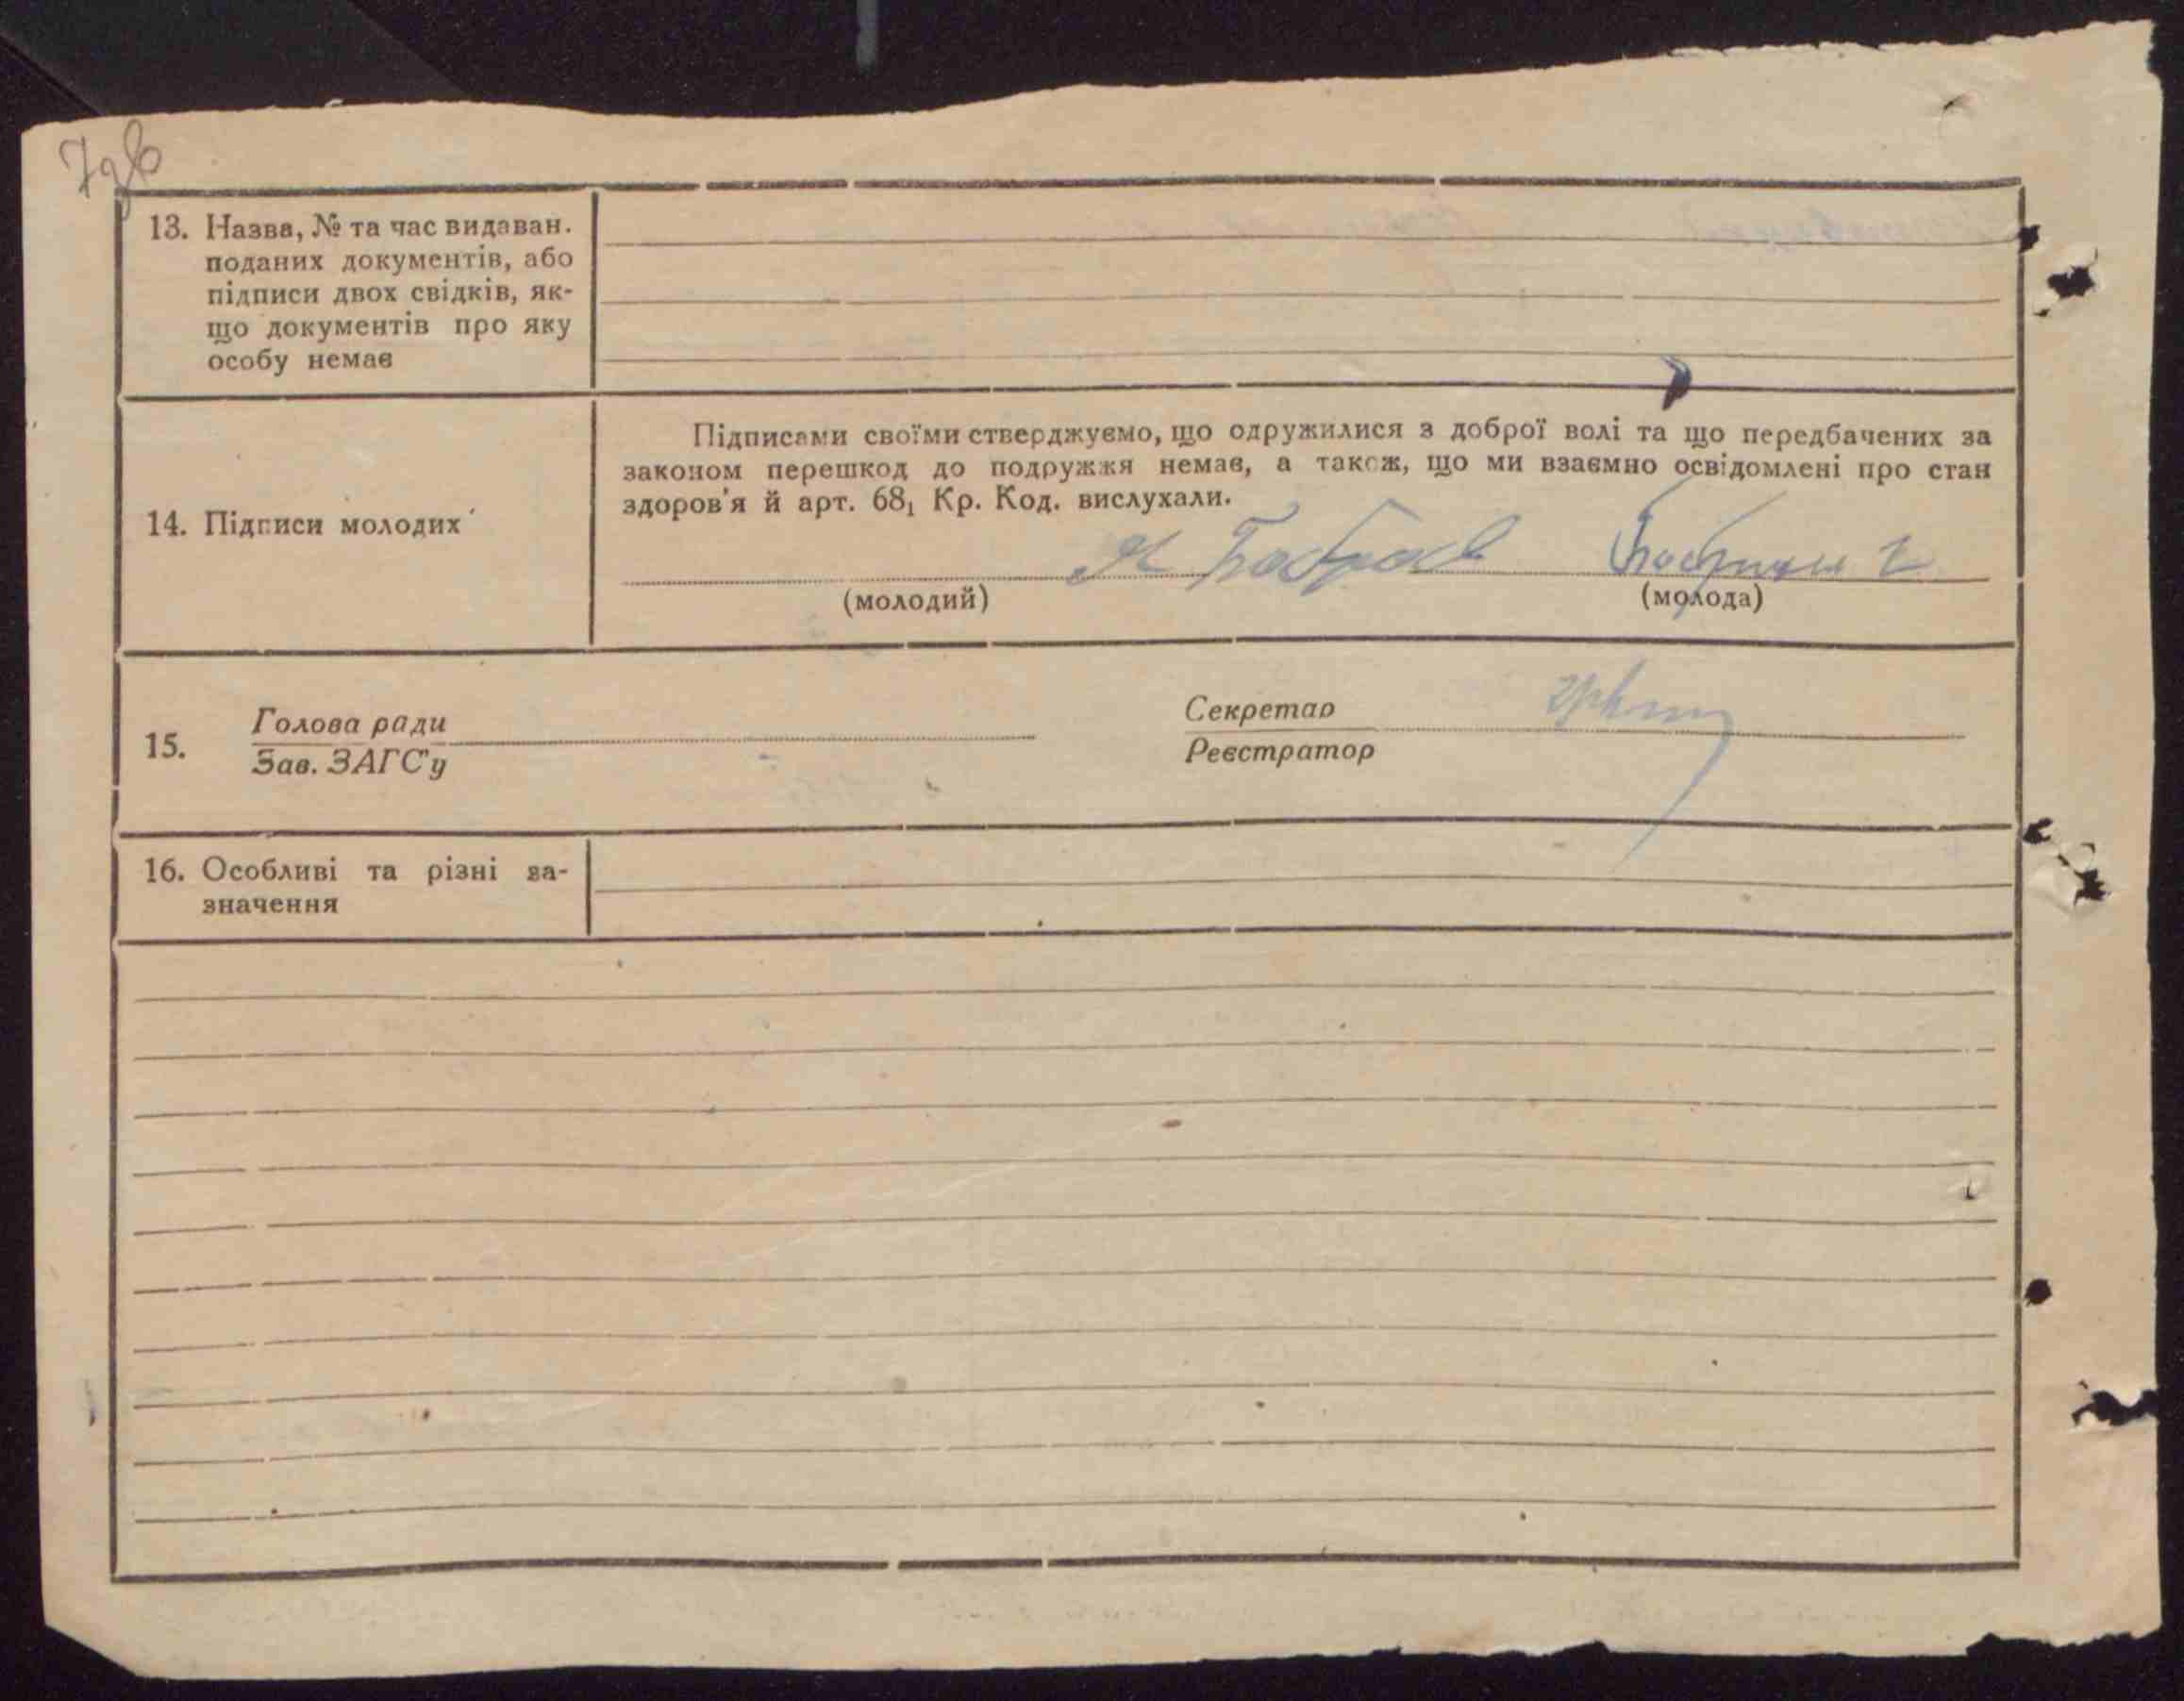 13. Назва, № та час видаван.
поданих документів, або
підписи двох свідків, як-
що документів про яку
особу немає
Підписами своїми стверджуємо, що одружилися з доброї волі та що передбачених за
законом перешкод до подружжя немає, а також, що ми взаємно освідомлені про стан
здоров'я й арт. 68₁ Кр. Код. вислухали.
14. Підписи молодих
(молодий) (молода)
15. Голова ради
Зав. ЗАГС'у
Секретар
Реєстратор
16. Особливі та різні за-
значення